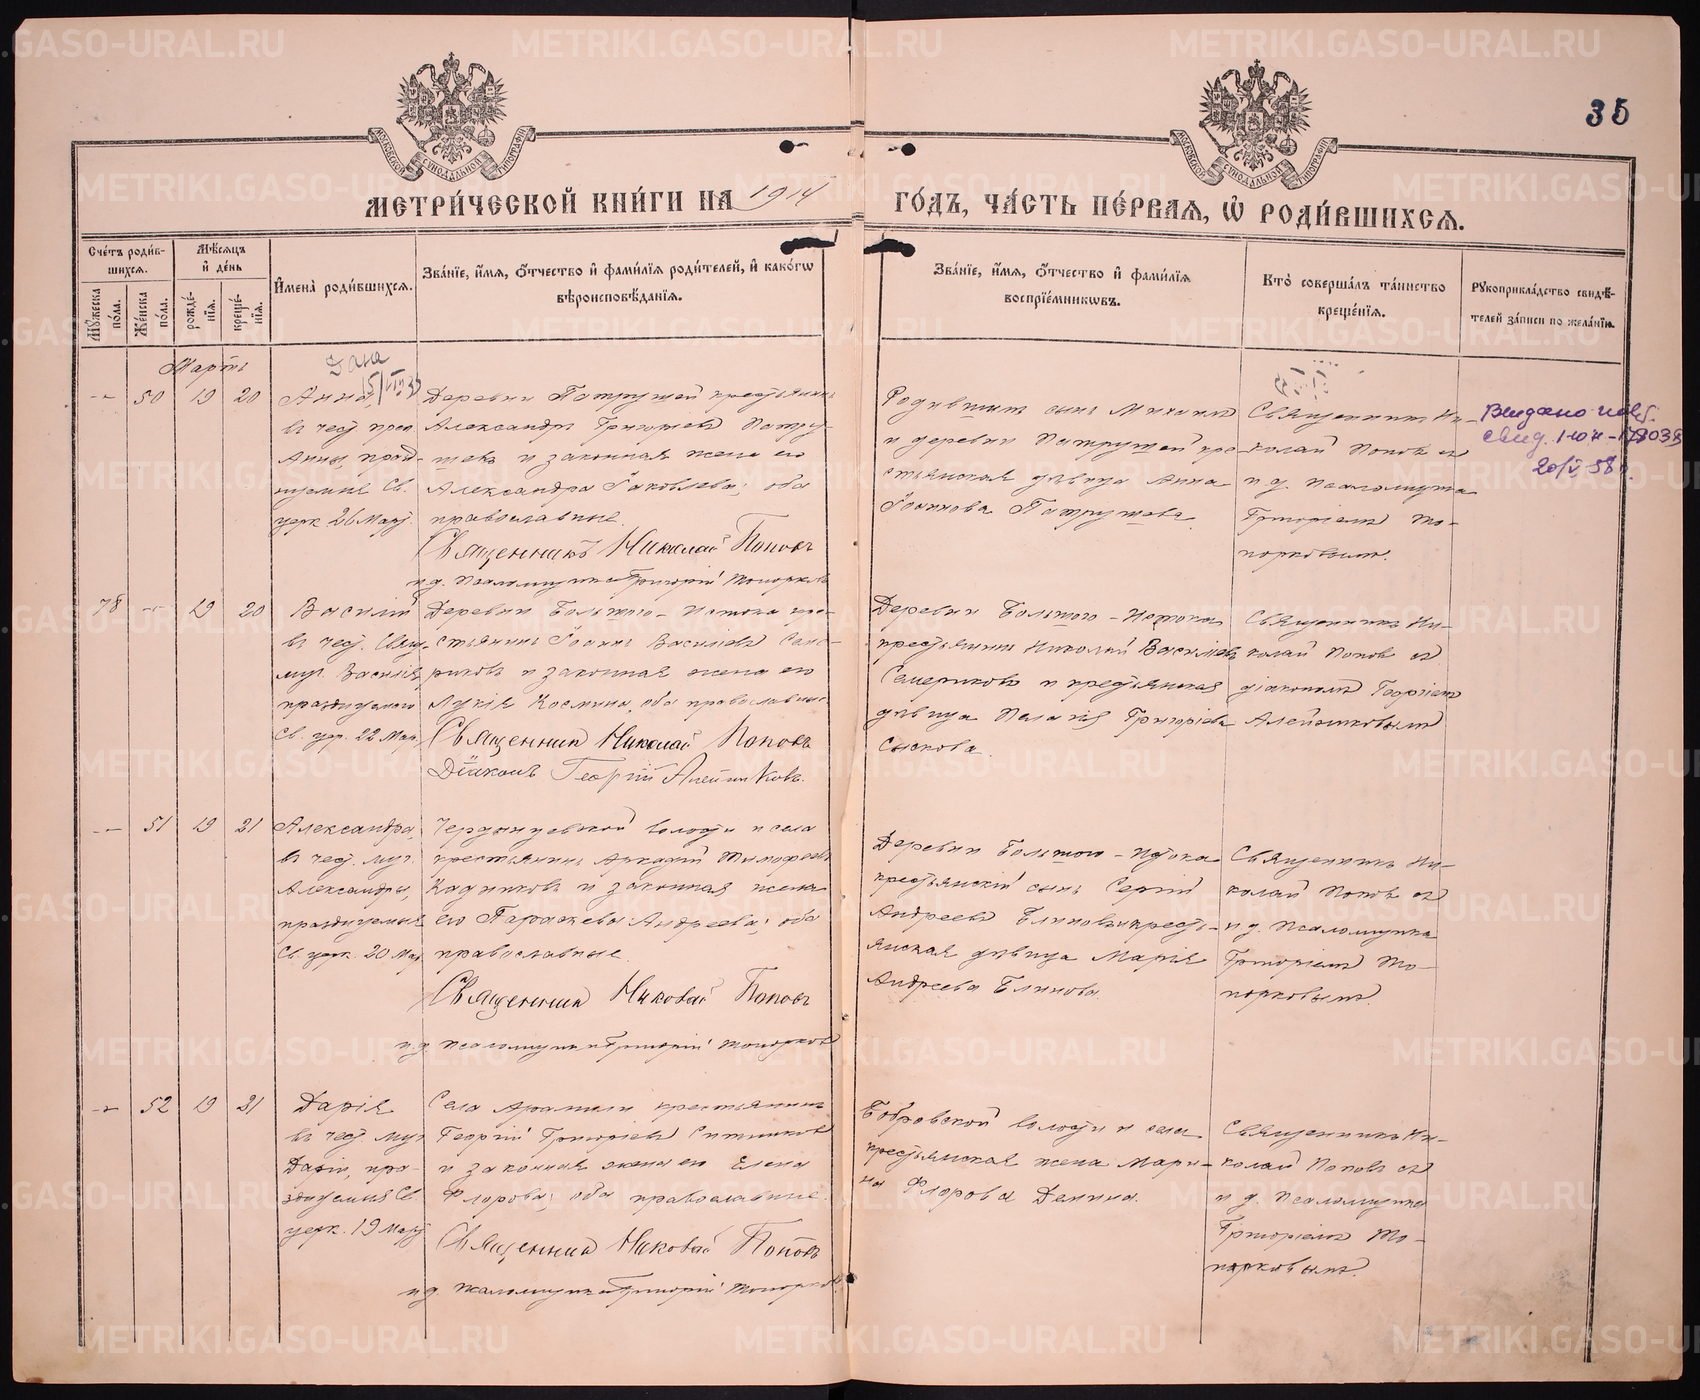 35
МЕТРИ́ЧЕСКОЙ КНИ́ГИ НА 1914 ГО́ДЪ, ЧА́СТЬ ПЕ́РВАЯ, Ѡ РОДИ́ВШИХСЯ.
Сче́тъ роди́вшихся.
Мꙋ́жеска по́ла.
Же́нска по́ла.
Мѣ́сяцъ и де́нь
рожде́нїя.
креще́нїя.
Имена̀ роди́вшихся.
Зва́нїе, и́мя, ѻ́тчество и фами́лїя роди́телей, и како́гѡ вѣроисповѣ́данїя.
Зва́нїе, и́мя, ѻ́тчество и фами́лїя воспрїе́мникѡвъ.
Кто̀ соверша́лъ та́инство креще́нїя.
Рꙋкоприкла́дство свидѣ́телей за́писи по жела́нїю.
Мартъ
-- 50 19 20
Анна,
въ чест. прав.
Анны, празд-
нуемыя Св.
церк. 26 Март.
Деревни Патрушей крестьянинъ
Александръ Григорьевъ Патру-
шевъ и законная жена его
Александра Іаковлева; оба
православные.
Священникъ Николай Поповъ
и.д. Псаломщика Григорій Топорковъ
и деревни Патрушей кре-
стьянская дѣвица Анна
Іоаннова Патрушева.
Священникъ Ни-
колай Поповъ съ
и д. псаломщика
Григоріемъ То-
порковымъ.
Выдано
20/V 58 г.
78 -- 19 20
Василій
въ чест. Свящ.
муч. Василія,
празднуемаго
Св. цер. 22 Мар.
Деревни Большого-Истока кре-
стьянинъ Іоаннъ Васильевъ
и законная жена его
Лукія Космина, оба православные
Священник Николай Поповъ
Діаконъ Георгій Алейниковъ.
Деревни Большого-Истока
крестьянинъ Николай Васильевъ
Семериковъ и крестьянская
дѣвица Пелагія Григорьева
Сыскова.
Священникъ Ни-
колай Поповъ съ
діакономъ Георгіемъ
Алейниковымъ
-- 51 19 21
Александра,
въ чест. муч.
Александры,
празднуемыя
Св. церк. 20 Мар.
волости и села
крестьянинъ Аркадій Тимофеевъ
Кадниковъ и законная жена
его Параскева Андреева; оба
православные.
Священник Николай Поповъ
и.д. псаломщика Григорій Топорковъ
Деревни Большого-Истока
крестьянскій сынъ Сергій
Андреевъ Блиновъ и кресть-
янская дѣвица Марія
Андреева Блинова.
Священникъ Ни-
колай Поповъ съ
и д. псаломщика
Григоріемъ То-
порковымъ.
-- 52 19 21
Дарія
въ чест. муч.
Даріи, пра-
зднуемыя Св.
церк. 19 Март.
Села Арамили крестьянинъ
Георгій Григорьевъ Ситниковъ
и законная жена его Елена
Флорова; оба православные.
Священник Николай Поповъ
и.д. псаломщика Григорій Топорковъ.
Бобровской волости и села
крестьянская жена Мари-
на Флорова Демина.
Священникъ Ни-
колай Поповъ съ
и д. псаломщика
Григоріемъ То-
порковымъ.
METRIKI.GASO-URAL.RU